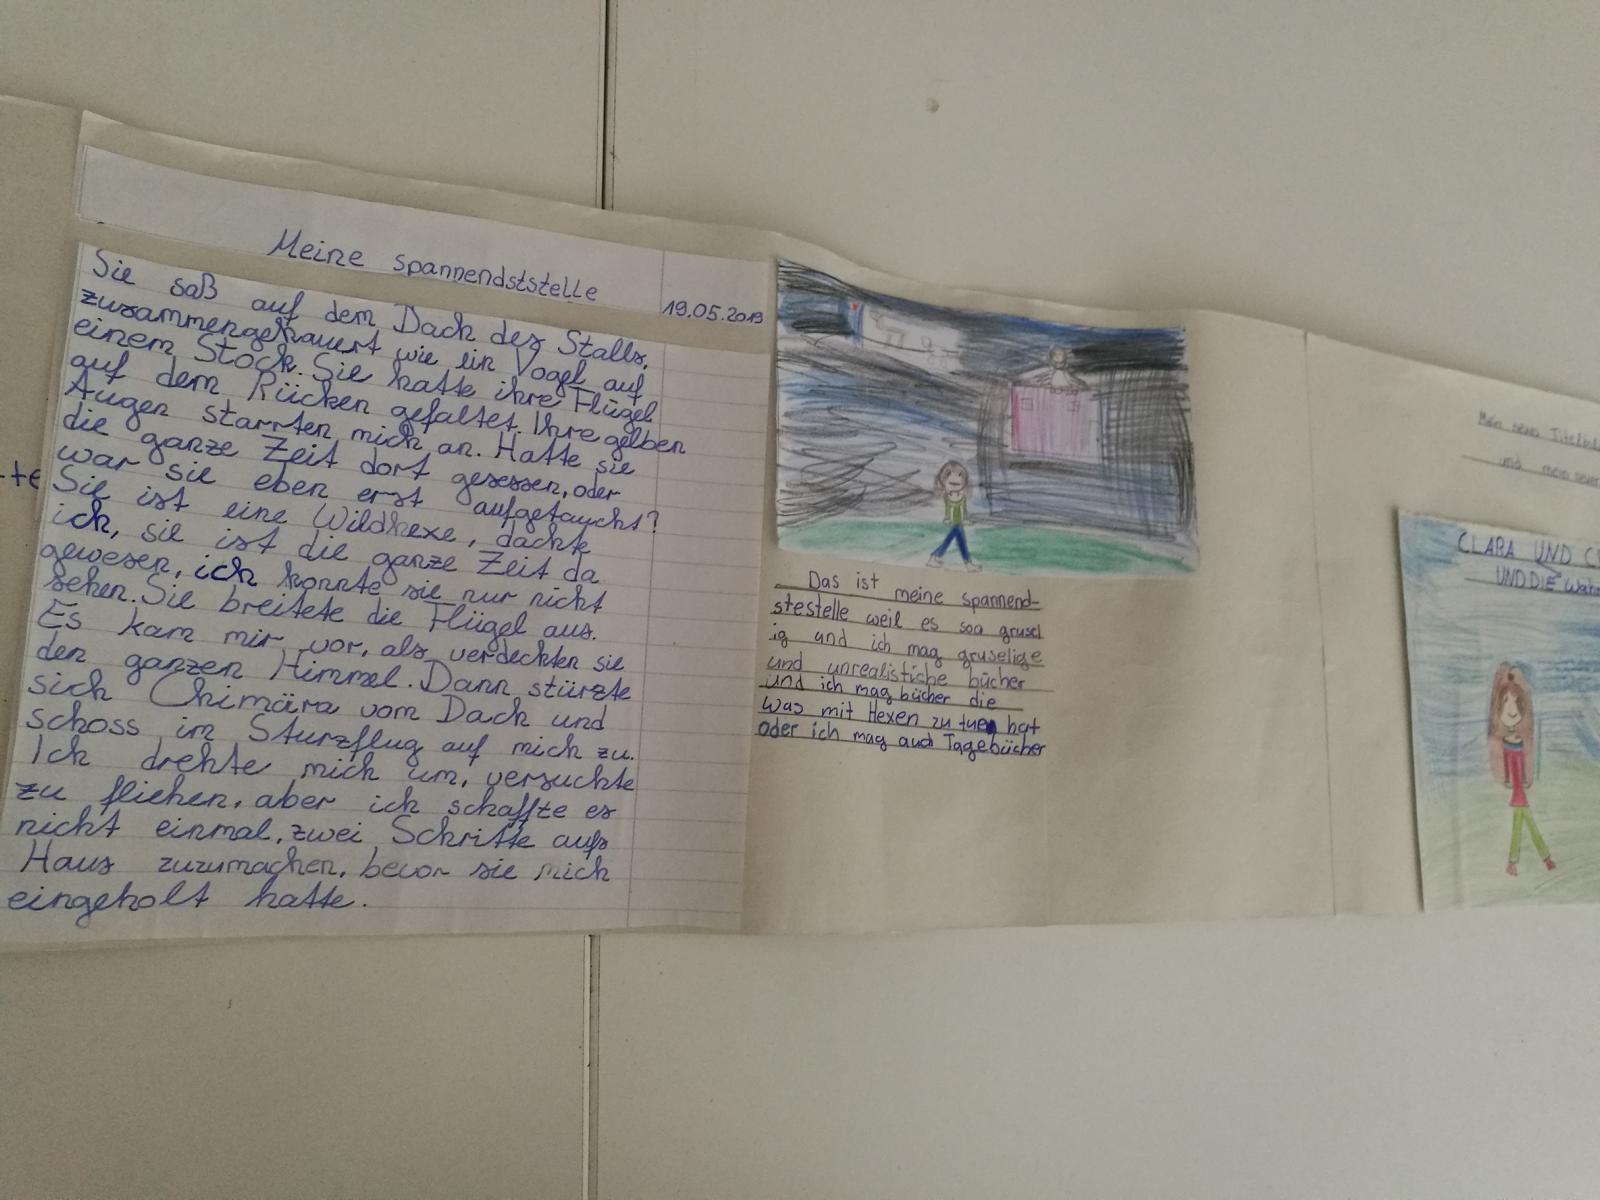 Meine spannendststelle
19.05.2019
Sie saß auf dem Dach des Stalls,
zusammengekauert wie ein Vogel auf
einem Stock. Sie hatte ihre Flügel
auf dem Rücken gefaltet. Ihre gelben
Augen starrten mich an. Hatte sie
die ganze Zeit dort gesessen, oder
war sie eben erst aufgetaucht?
Sie ist eine Wildhexe, dachte
ich, sie ist die ganze Zeit da
gewesen, ich konnte sie nur nicht
sehen. Sie breitete die Flügel aus.
Es kam mir vor, als verdeckten sie
den ganzen Himmel. Dann stürzte
sich Chimära vom Dach und
schoss im Sturzflug auf mich zu.
Ich drehte mich um, versuchte
zu fliehen, aber ich schaffte es
nicht einmal, zwei Schritte aufs
Haus zuzumachen, bevor sie mich
eingeholt hatte.
Das ist meine spannend-
stestelle weil es soo grusel
ig und ich mag gruselige
und unrealistiche bücher
und ich mag bücher die
was mit Hexen zu tuen hat
oder ich mag auch Tagebücher
-te
Mein neues Titelbil
und mein neuer
CLARA UND C
UND DIE Wahr